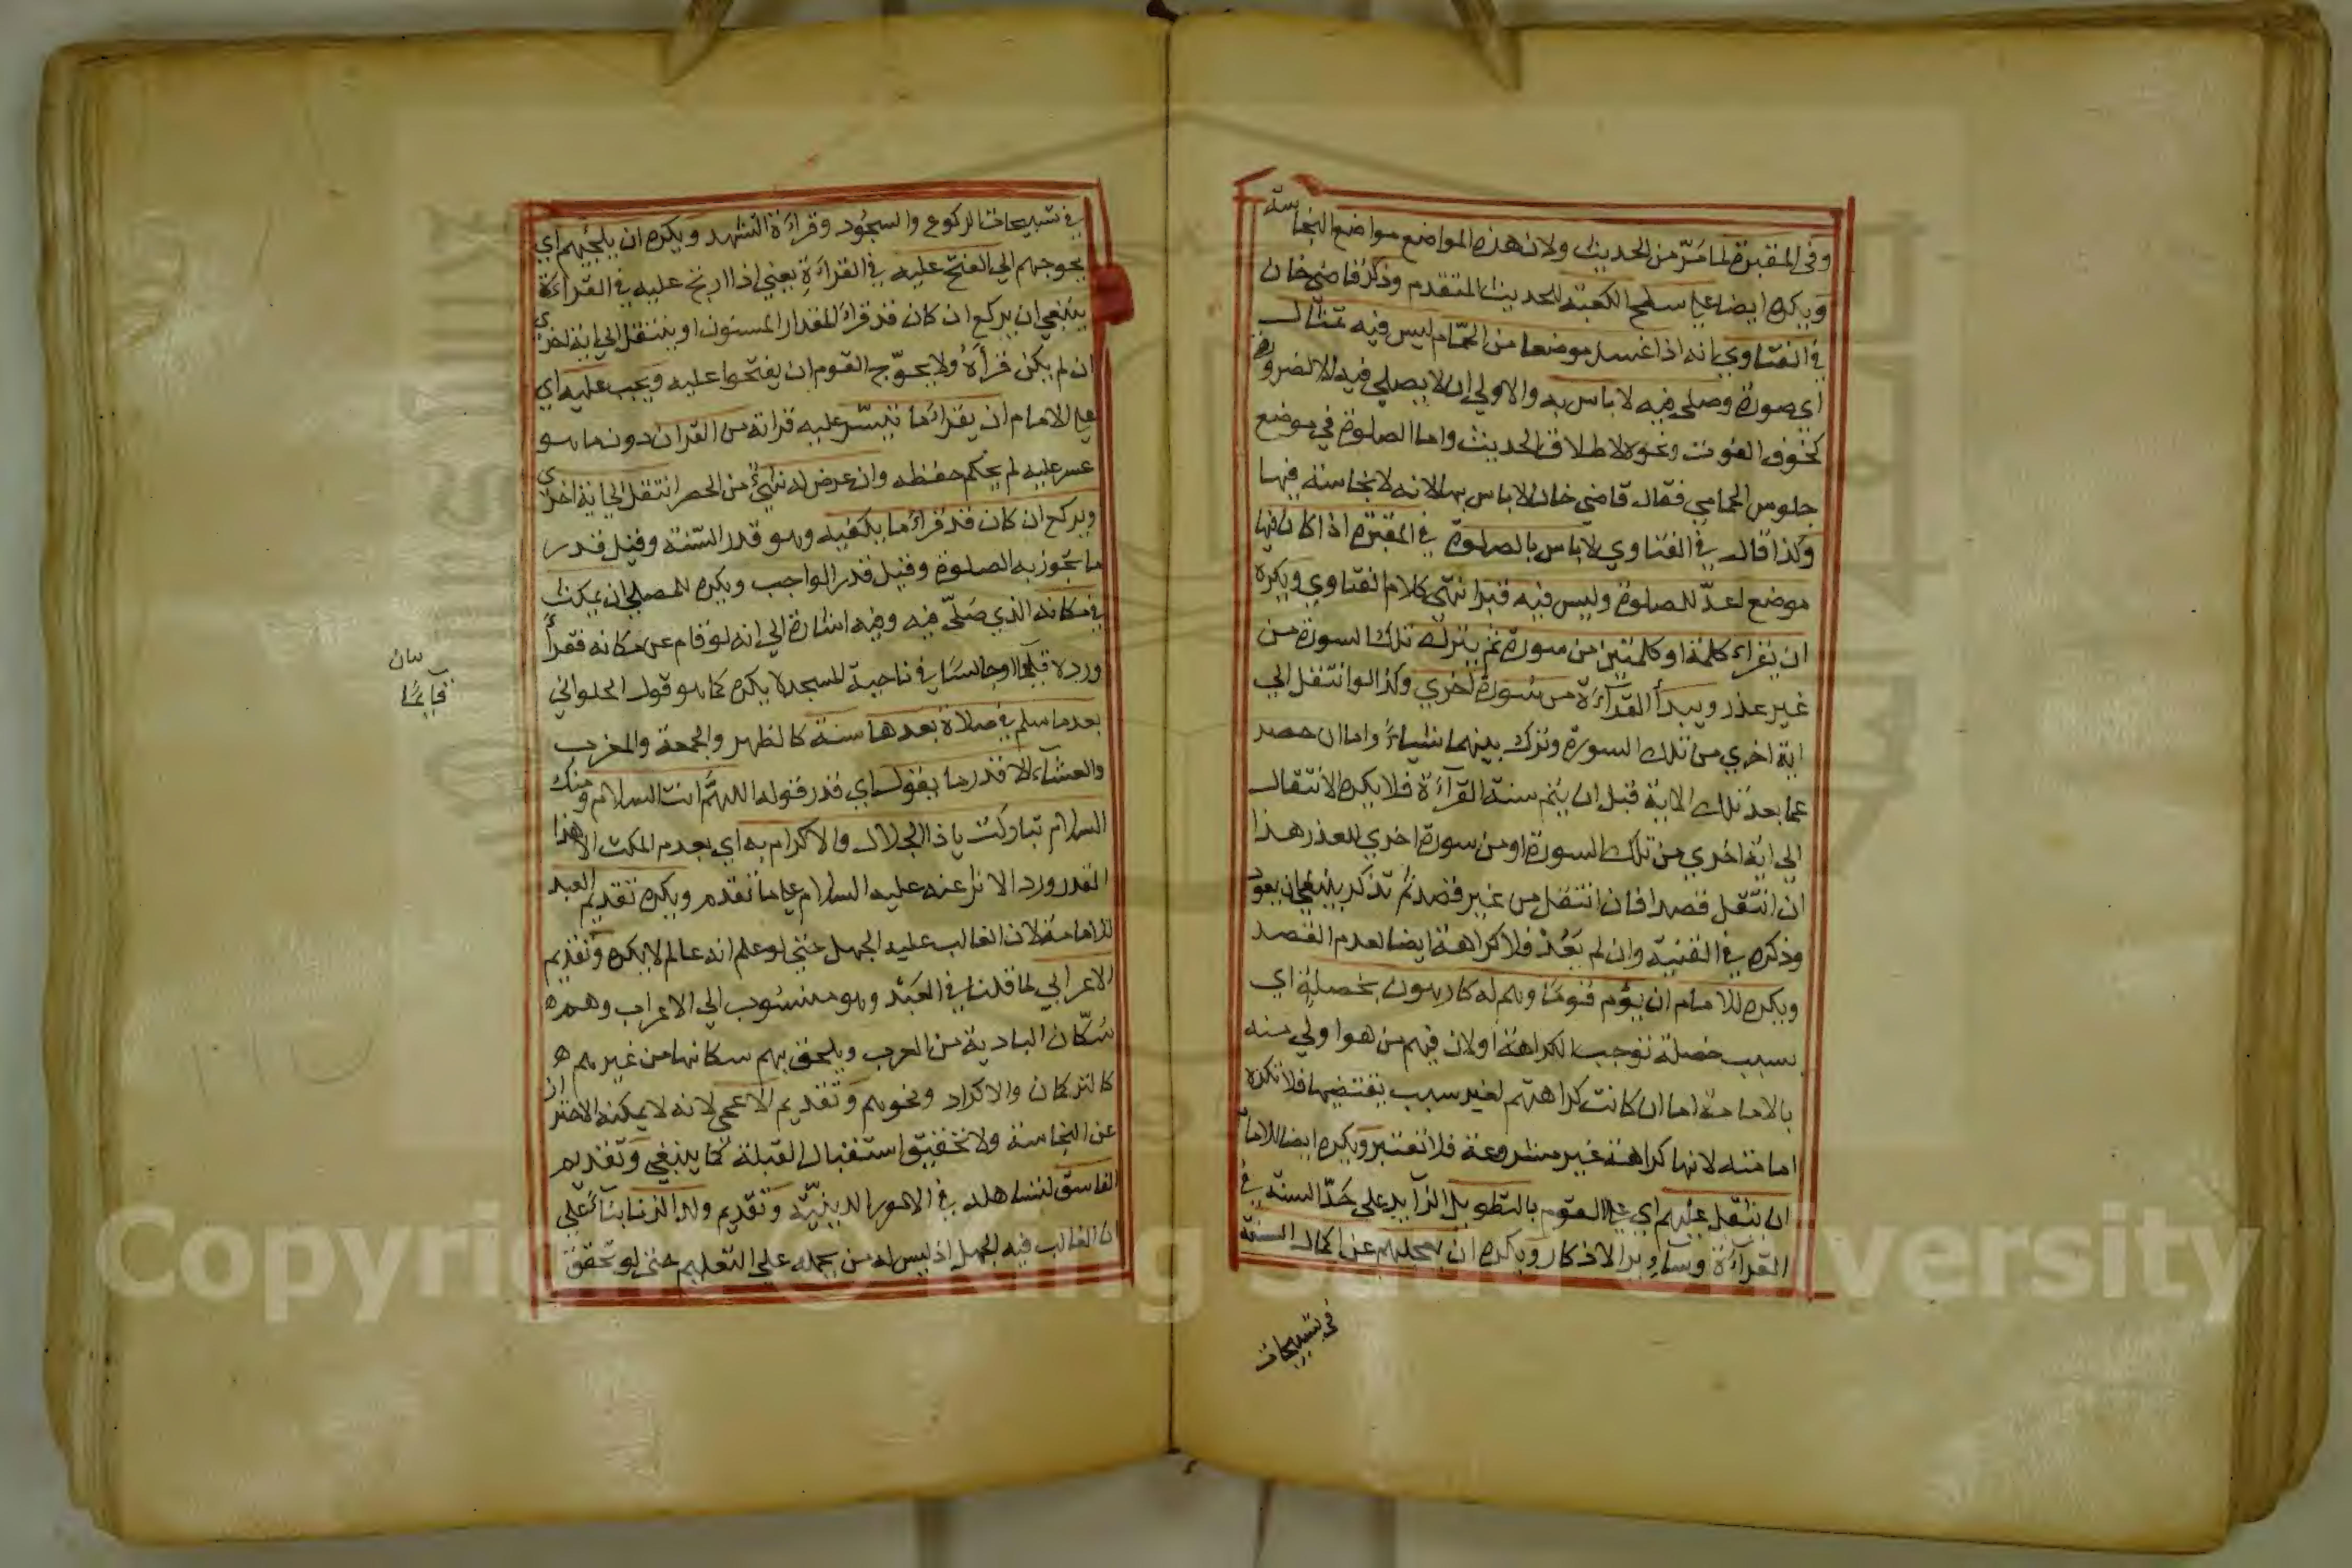 وفى المقبرة لما مَرّ من الحديث ولان هذه المواضع مواضع النجاسة
ويكره ايضا على سطح الكعبة للحديث المتقدم وذكر قاضى خان
في الفتاوي انه اذا غسل موضعا من الحمّام ليس فيه تمثال
اي صورة وصلى فيه لا باس به والاولى ان لا يصلى فيه الا لضرورة
كخوف الفوت ونحوه لاطلاق الحديث واما الصلوة في موضع
جلوس الحمامي فقال قاضى خان لا باس بها لانه لا نجاسة فيها
وكذا قال في الفتاوي لا باس بالصلوة في المقبرة اذا كان فيها
موضع اعدّ للصلوة وليس فيه قبر انتهى كلام الفتاوي ويكره
ان يقراء كلمة او كلمتين من سورة ثم يترك تلك السورة من
غير عذر ويبدأ القرآءة من سورة اخري وكذا لو انتقل الى
اية اخري من تلك السورة وترك بينهما شياءً واما ان حصر
عما بعد تلك الاية قبل ان يتم سنة القرآءة فلا يكره الانتقال
الى اية اخري من تلك السورة او من سورة اخري للعذر هذا
ان انتقل قصدا فان انتقل من غير قصد ثم تذكر ينبغي ان يعود
وذكره في القنية وان لم يَعُدْ فلا كراهة ايضا لعدم القصد
ويكره للامام ان يؤم قومًا وهم له كارهون بخصلة اي
بسبب خصلة توجب الكراهة او لان فيهم من هو اولي منه
بالامامة اما ان كانت كراهتهم لغير سبب يقتضيها فلا تكره
امامته لانها كراهة غير مشروعة فلا تعتبر ويكره ايضا للامام
ان يثقل عليهم اي على القوم بالتطويل الزآيد على حَدّ السنة في
القرآءة وسآير الاذكار ويكره ان يعجلهم عن اكمال السنة
في تسبيحات
في تسبيحات الركوع والسجُود وقراءة التشهد ويكره ان يلجئهم اي
يحوجهم الي الفتح عليه في القراءَة يعني اذا ارتج عليه في القراءَة
ينبغي ان يركع ان كان قد قراءَ المقدار المسنون او ينتقل الى اية اخرى
ان لم يكن قرأَهُ ولا يحوّج القوم ان يفتحوا عليه ويجب عليه اي
على الامام ان يقراءَ ما تيسّر عليه قراته من القران دون ما هو
عسر عليه لم يحكم حفظه وان عرض له شئ من الحصر انتقل الى اية اخرى
ويركع ان كان قد قراءَ ما يكفيه وهو قدر السّنة وقيل قدر
ما تجوز به الصلوة وقيل قدر الواجب ويكره للمصلي ان يمكث
في مكانه الذي صَلّى فيه وفيه اشارة الى انه لو قام عن مكانه فقرأَ
ورده قآيمًا او جالسًا في ناحية المسجد لا يكره كما هو قول الحلواني
بيان
قآيمًا
بعد ما سلم في صلاة بعدها سنة كالظهر والجمعة والمغرب
والعشآء الا قدر ما يقول اي قدر قوله اللهُمَّ انت السلام ومنك
السلام تباركت يا ذا الجلال والاكرام به اي بعدم المكث الا هذا
القدر ورد الاثر عنه عليه السلام على ما تقدم ويكره تقديم العبد
للامامة لان الغالب عليه الجهل حتى لو علم انه عالم لا يكره وتقديم
الاعرابي لما قلنا في العَبْد وهو منسُوب الي الاعراب وهم
سُكّان البادية من العرب ويلحق بهم سكانها من غيرهم
كالتركمان والاكراد ونحوهم وَتقديم الاعمى لانه لا يمكنه الاحتراز
عن النجاسة ولا تحقيق استقبال القبلة كما ينبغي وَتقديم
الفاسق لتساهله في الامور الدينيّة وَتقديم ولد الزنا بنآءً على
ان الغالب فيه الجهل اذ ليس له من يحمله على التعليم حتى لو تحقق